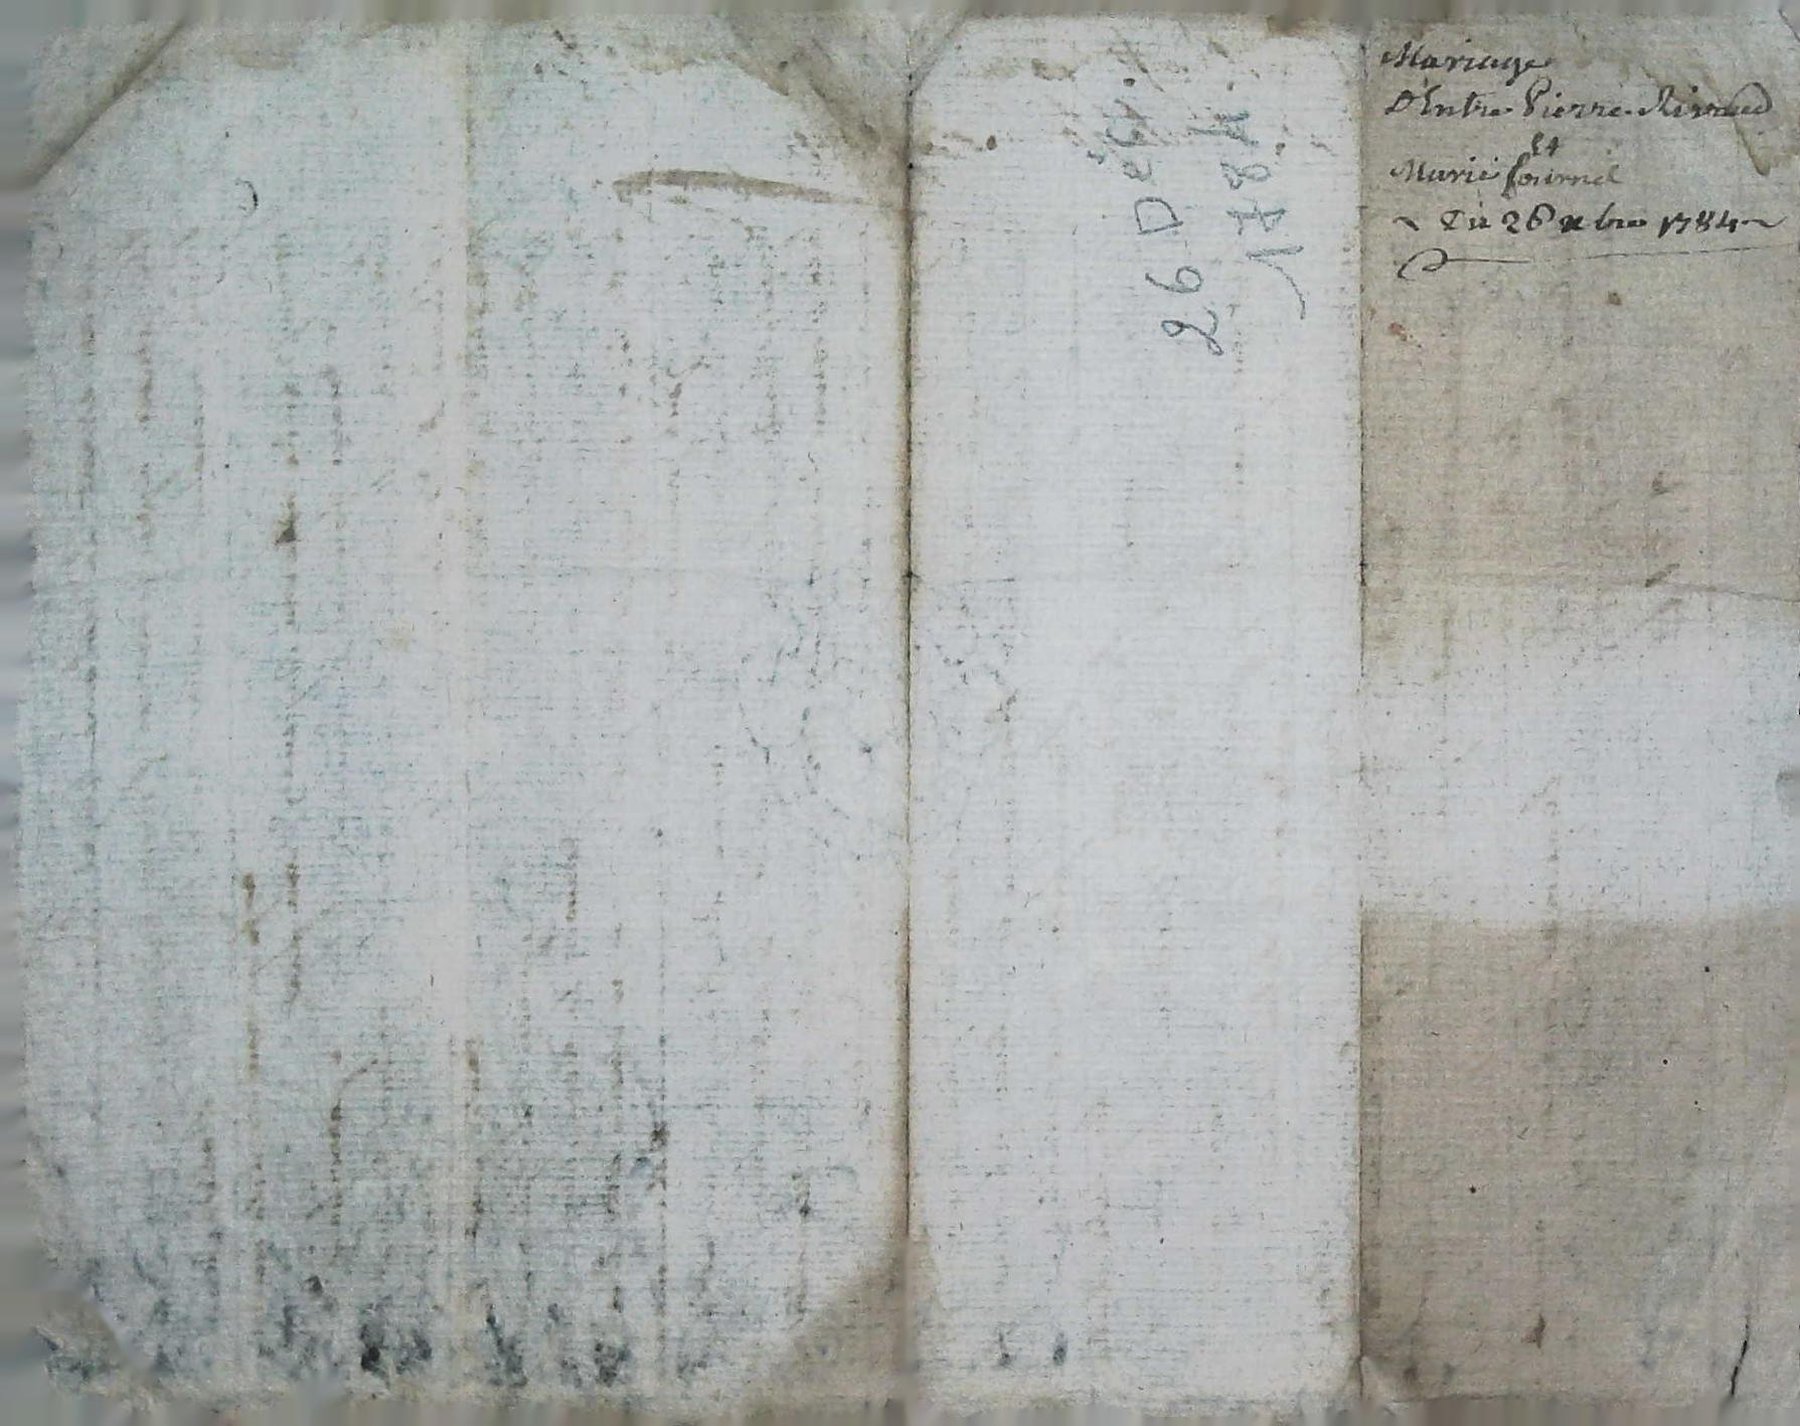 Mariage
D'Entre Pierre
Et
Marie fournel
Du 26 xbre 1784
26 Déc.
1784.